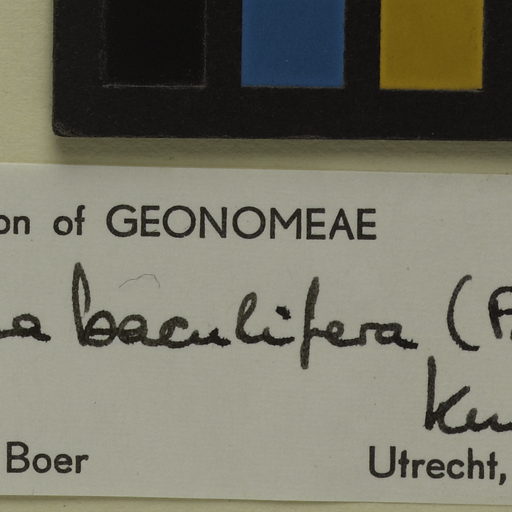 on of GEONOMEAE
a baculifera (P
Ku
Boer
Utrecht,